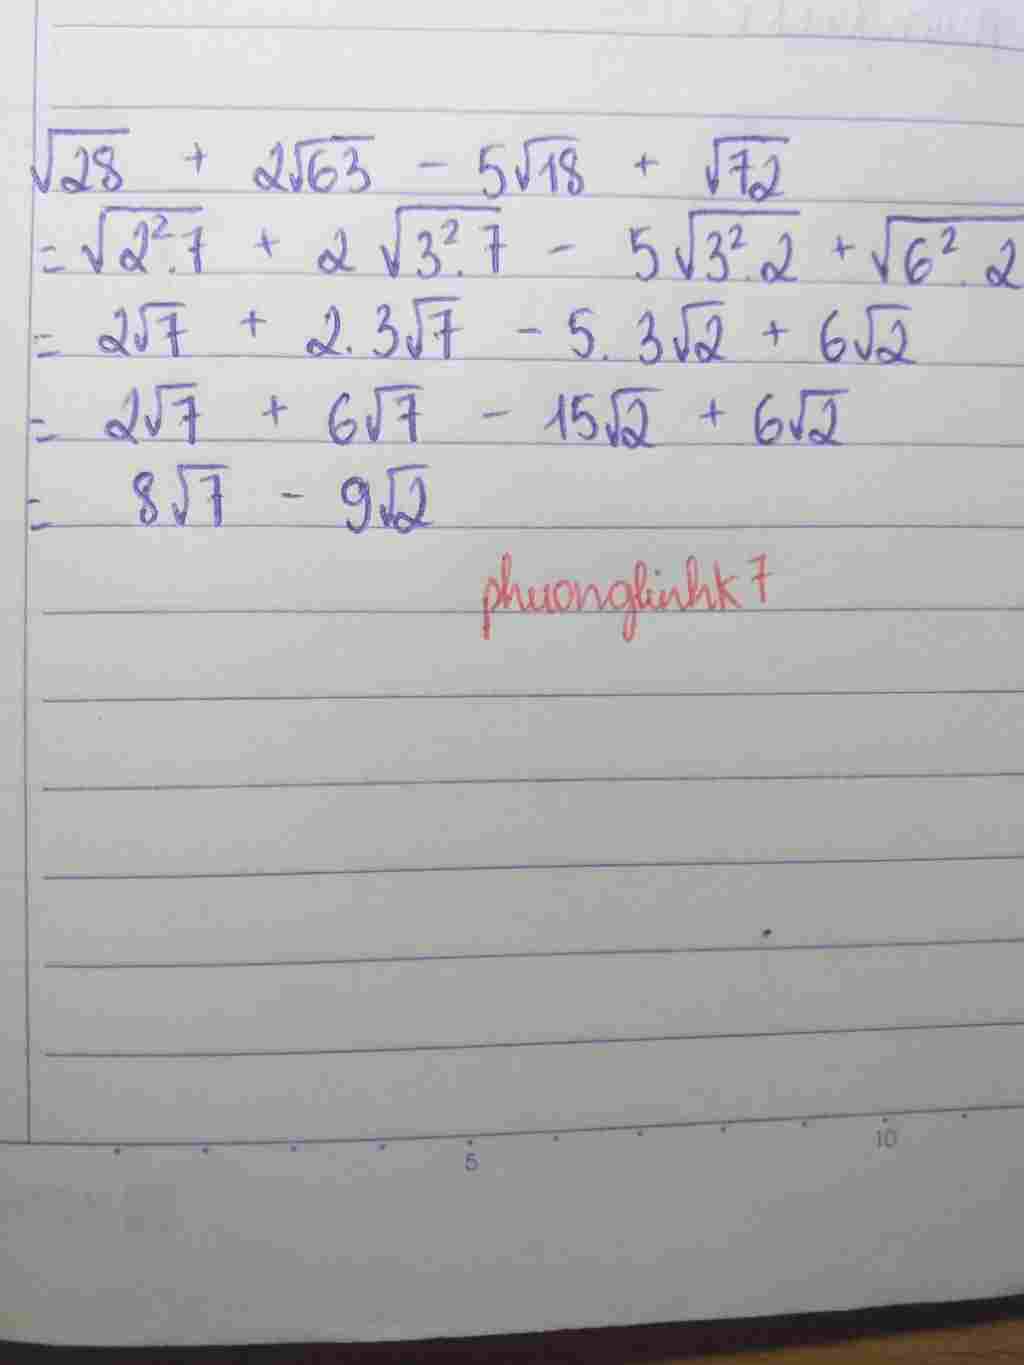 √28 + 2√63 - 5√18 + √72
= √2².7 + 2 √3².7 - 5√3².2 + √6².2
= 2√7 + 2.3√7 - 5.3√2 + 6√2
= 2√7 + 6√7 - 15√2 + 6√2
= 8√7 - 9√2
phuonglinhk7
5 10